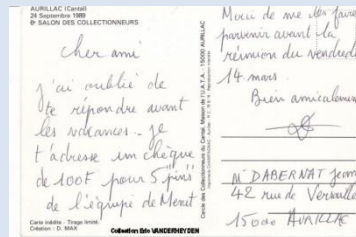 AURILLAC (Cantal)
24 Septembre 1989
6e SALON DES COLLECTIONNEURS
cher ami
j'ai oublié de
te répondre avant
les vacances - je
t'adresse un chèque
de 100F pour 5 pins
de l'équipe de Menet
Carte inédite - Tirage limité
Création - D. MAX
Collection Eric VANDERHEYDEN
Cercle des Collectionneurs du Cantal, Maison de l'U.A.T.A. - 15000 AURILLAC
Merci de me les faire
parvenir avant la
réunion du vendredi
14 mars
Bien amicalement
M. DABERNAT Jean
42 rue de Versailles
15000 AURILLAC